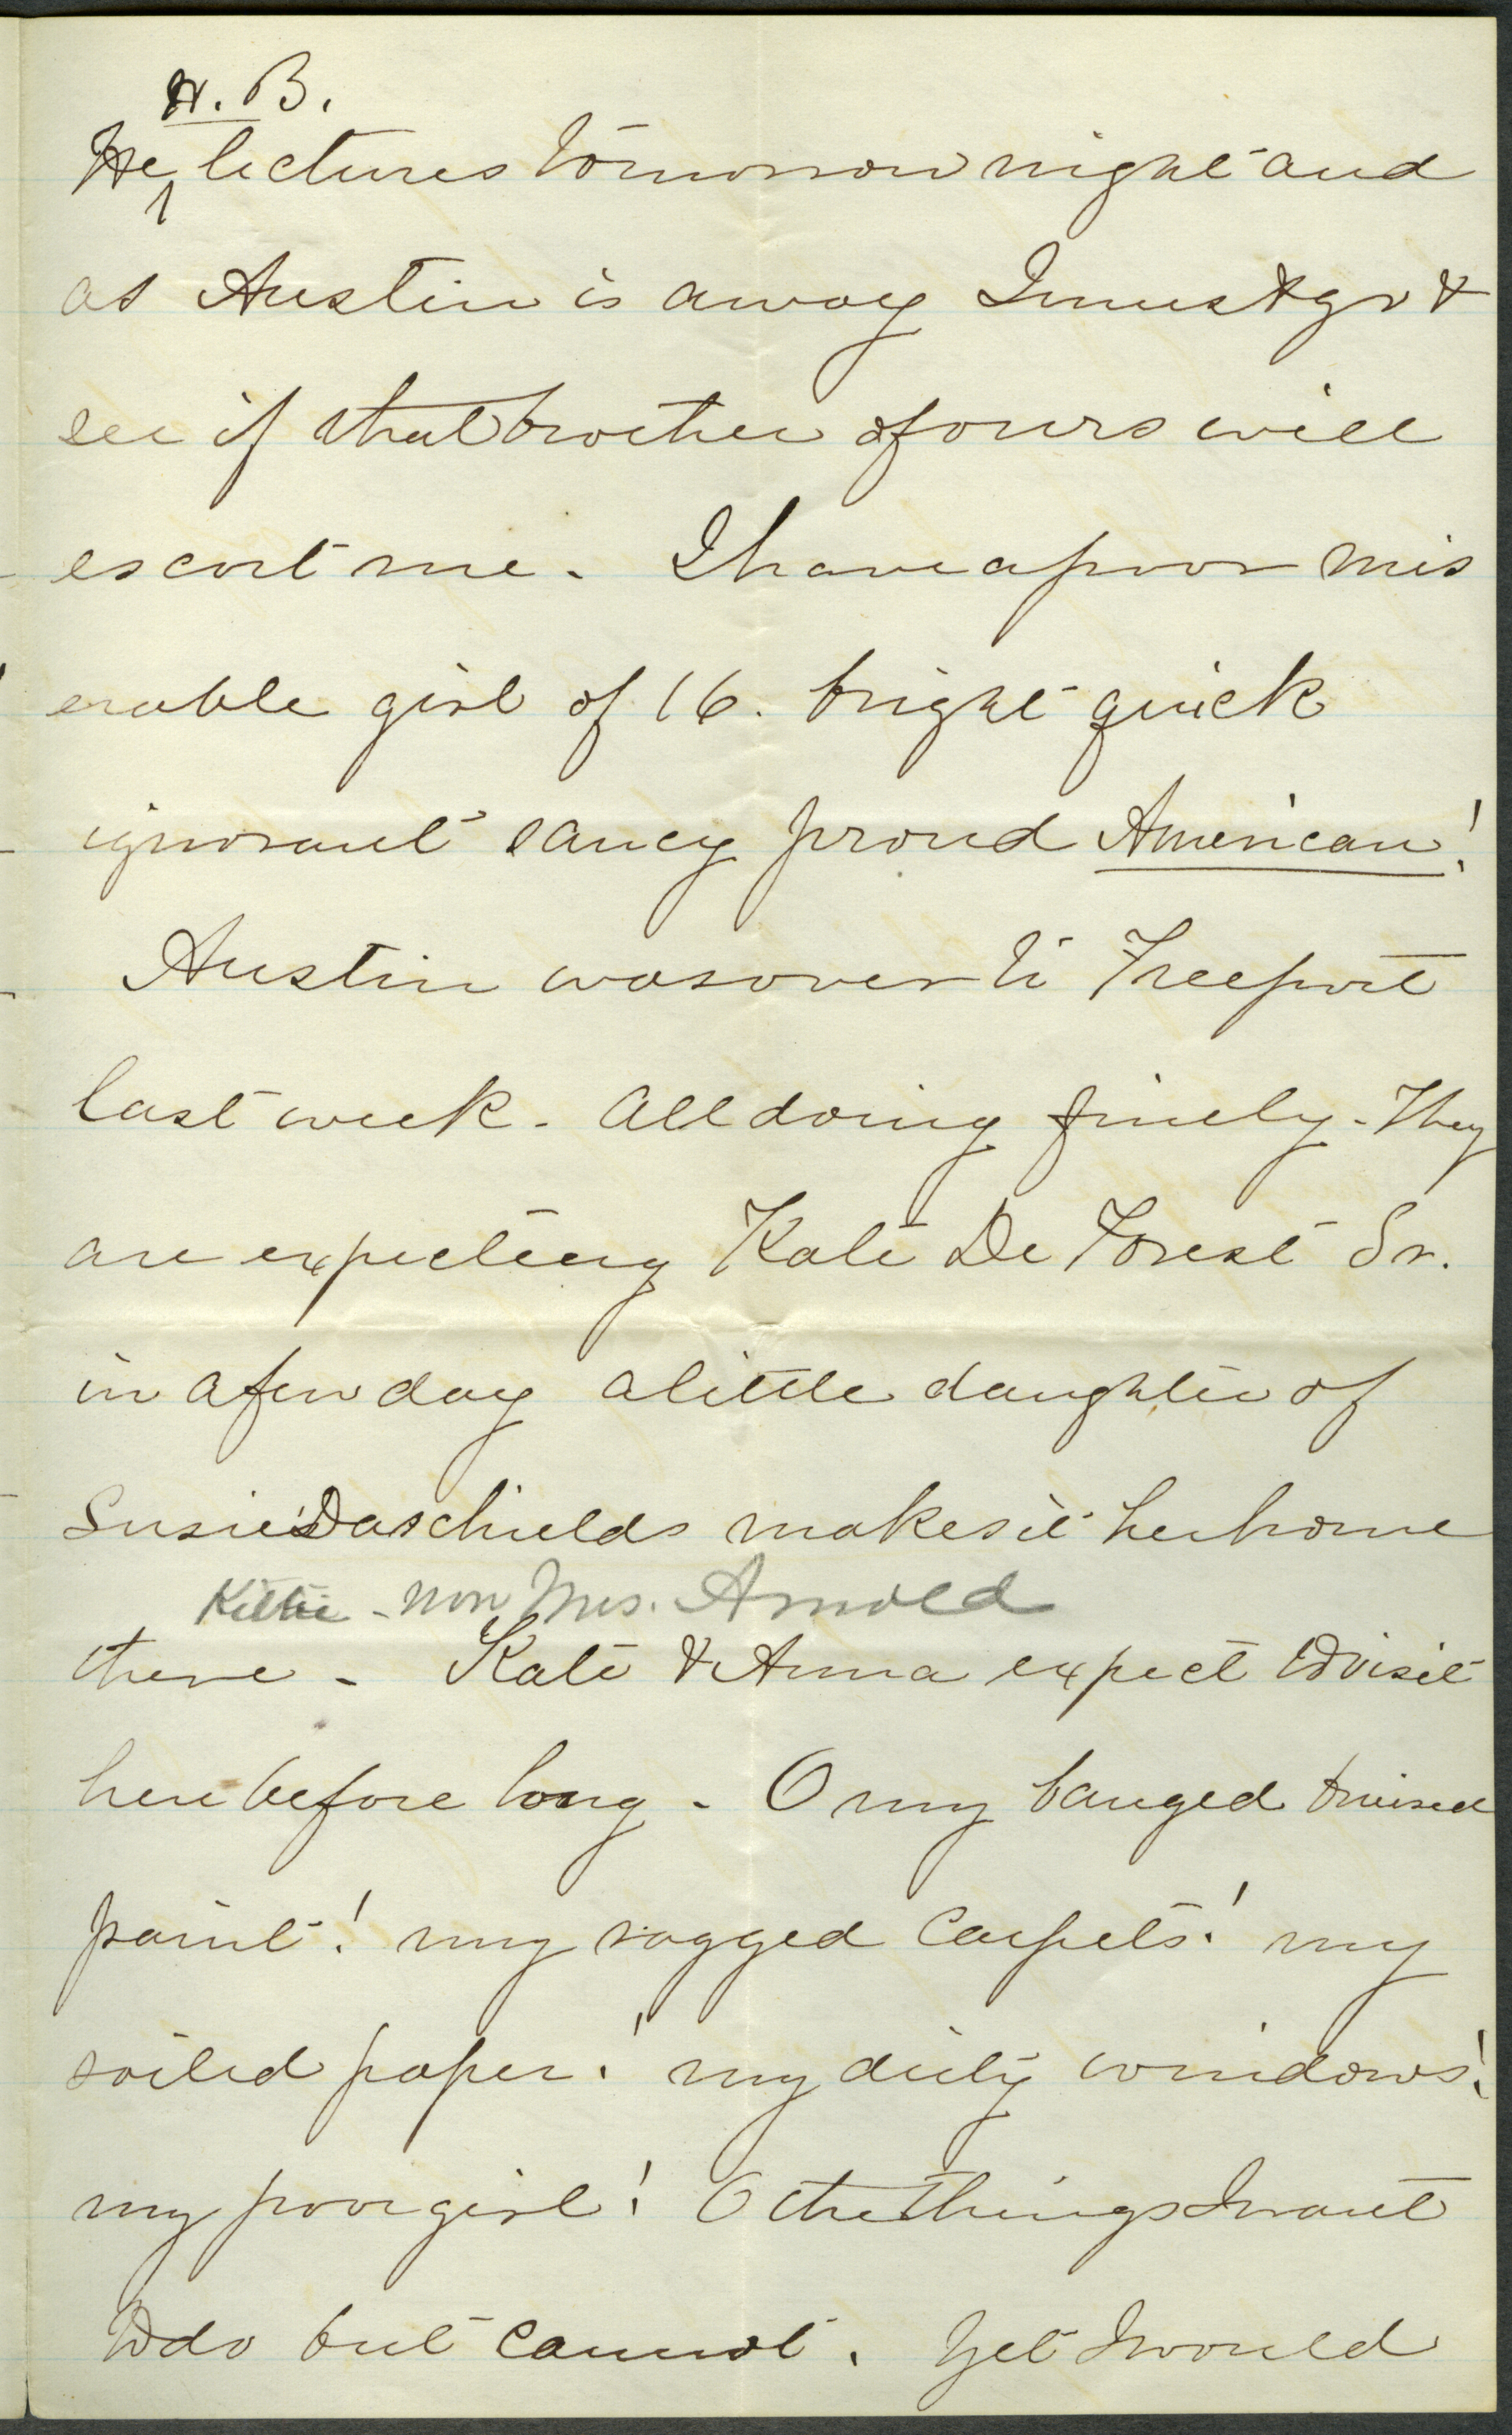 H. B.
He lectures tomorrow night and
as Austin is away I must go &
see if that brother of ours will
escort me. I have a poor mis
erable girl of 16. bright quick
ignorant saucy proud American!
Austin was over to Freeport
last week. All doing finely. They
are expecting Kate De Forest Sr.
in a few day a little daughter of
Susie Daschields makes it her home
Kittie - now Mrs. Arnold
there - Kate & Anna expect to visit
here before long. O my banged bruised
paint! my ragged carpets! my
soiled paper! my dirty windows!
my poor girl! O the things I want
to do but cannot. Yet I would